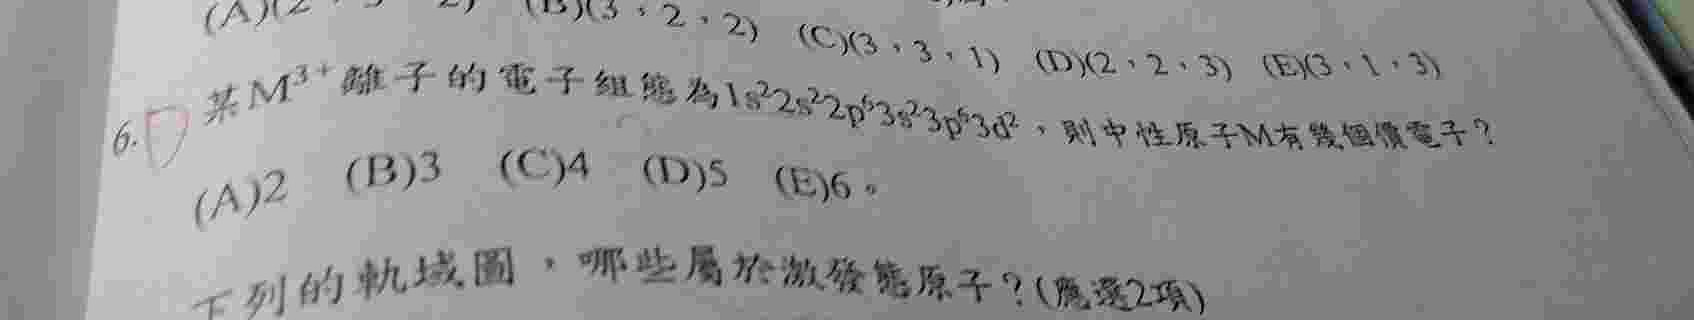 (B)(3,2,2) (C)(3,3,1) (D)(2,2,3) (E)(3,1,3)
6. D 某M³⁺離子的電子組態為1s²2s²2p⁶3s²3p⁶3d²,則中性原子M有幾個價電子?
(A)2 (B)3 (C)4 (D)5 (E)6。
下列的軌域圖,哪些屬於激發態原子?(應選2項)